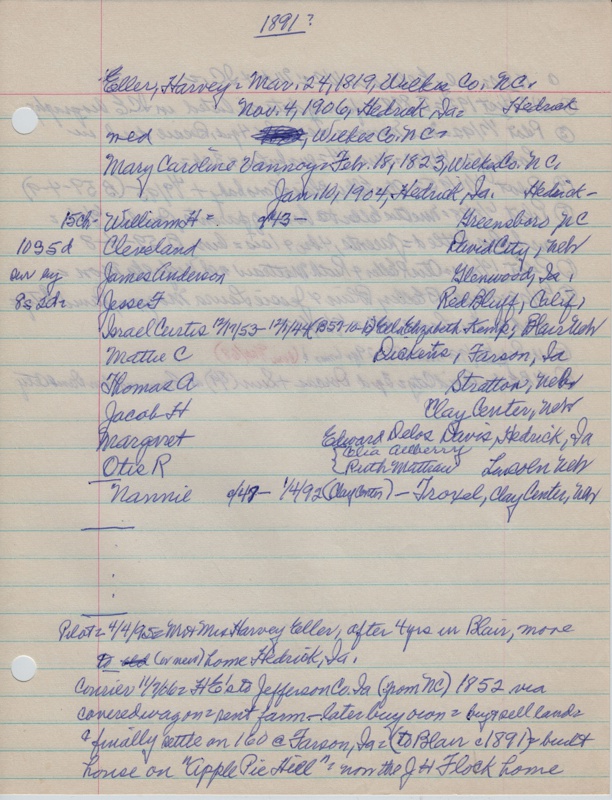 1891?
Eller, Harvey = Mar. 24, 1819, Wilkes Co. NC.
Nov. 4, 1906, Hedrick, Ia = Hedrick
med , Wilkes Co. NC =
Mary Caroline Vannoy = Feb. 18, 1823, Wilkes Co. NC.
Jan. 10, 1904, Hedrick, Ia. Hedrick -
15ch - William H = d/43 - Greensboro NC
10 s 5 d Cleveland David City, Neb
James Anderson Glenwood, Ia.
8 s 2d = Jesse F Red Bluff, Calif.
Israel Curtis 12/17/53 - 12/1/44 (B57-10-1) Elizabeth Kemp, Blair Neb
Mattie C Dickens, Farson, Ia
Thomas A Stratton, Nebr
Jacob H Clay Center, Neb
Margaret Edward Delos Davis, Hedrick, Ia
Otis R { Celia Allberry
Ruth Matteau Lincoln Neb
Nannie d/47 - 1/4/92 (Clay Center) - Troxel, Clay Center, Neb
Pilot = 4/4/95 = Mr & Mrs Harvey Eller, after 4 yrs in Blair, move
to old (or new) home Hedrick, Ia.
Courier 11/7/66 = HE's to Jefferson Co. Ia (from NC) 1852 via
covered wagon = rent farm - later buy own = buy & sell lands
& finally settle on 160 @ Farson, Ia = (to Blair c1891) = built
house on "Apple Pie Hill" = now the J H Flock home